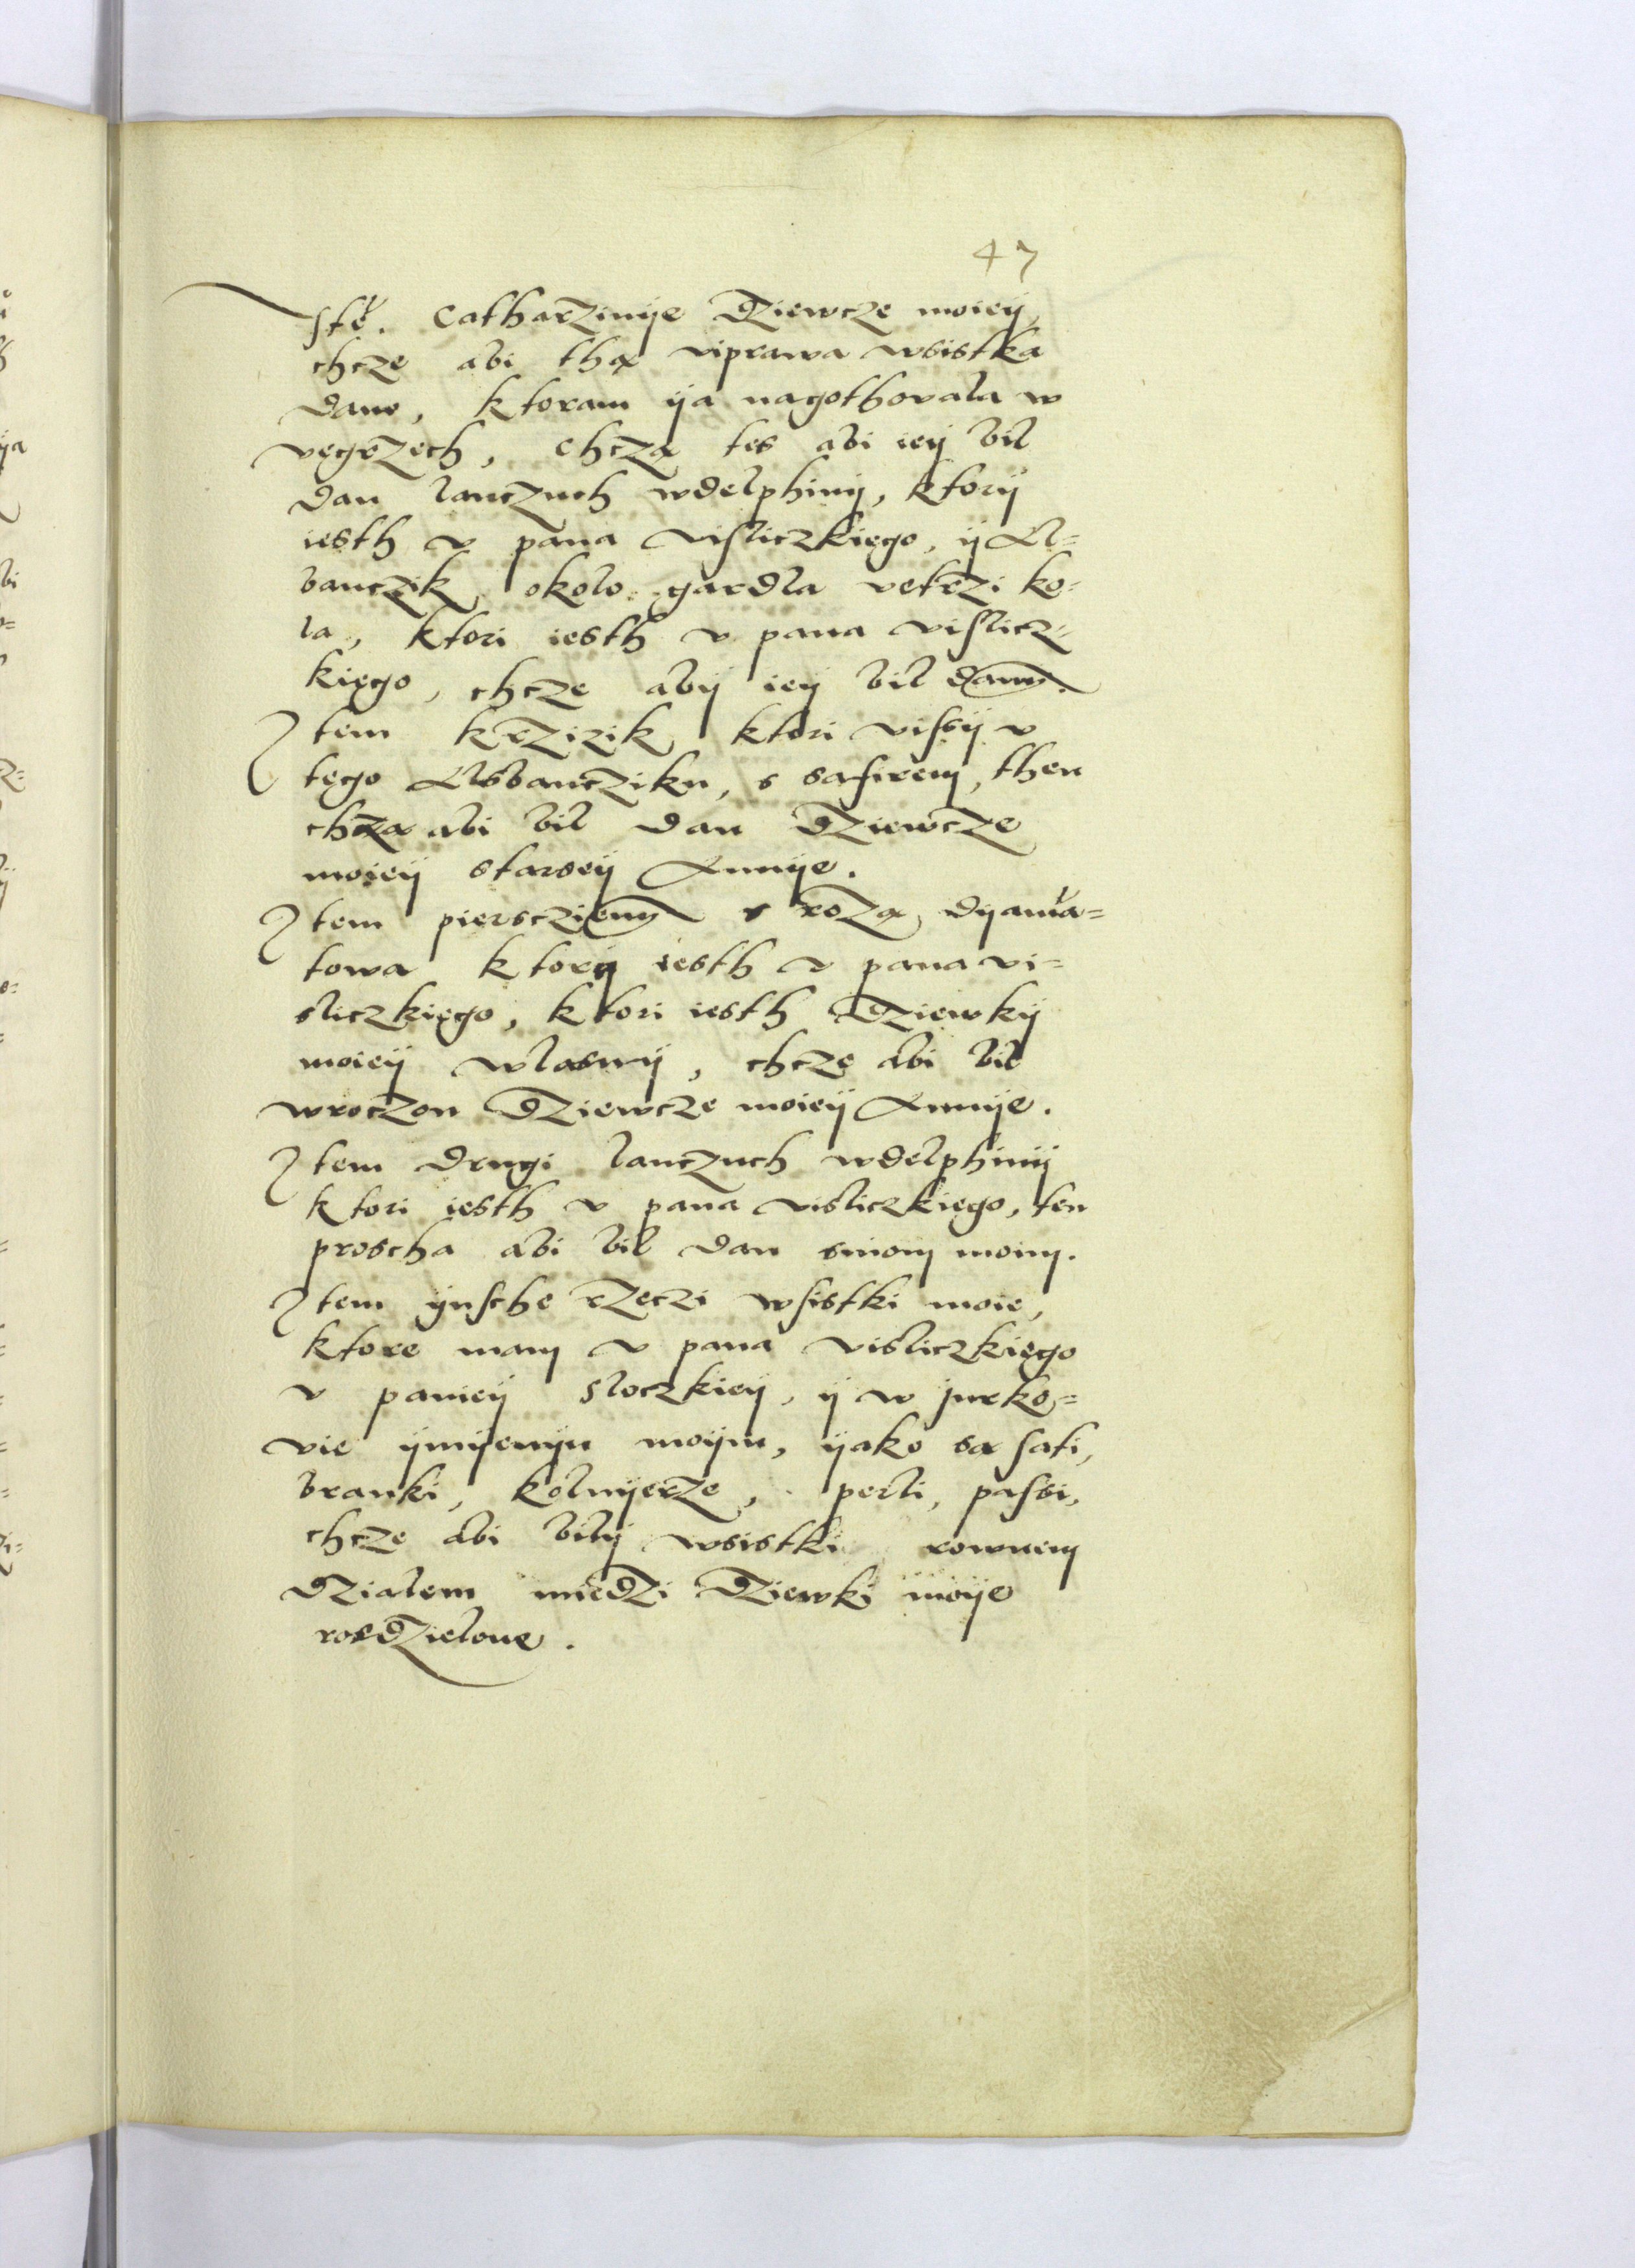 47
Itē. Catharzinÿe dziewcze moieÿ,
chcze abi tha viprawa wsistka
dano, ktoram ÿa nagothovala w
vegrzech, chcza tes abi ieÿ bil
dan lanczuch wdelphinÿ, ktorÿ
iesth v pana visliczkięgo, ÿ Al=
banczik okolo gardla vetrzi ko=
la, ktori iesth v pana vislicz=
kięgo, chcze abÿ ieÿ bil danÿ.
Item krzizik ktori vissÿ v
tęgo Alsbancziku, s safirem, then
chcza abi bil dan dziewcze
moieÿ starseÿ Annÿe.
Item piersczienÿ s roza dÿama=
towa ktorÿ iesth v pana vi=
sliczkięgo, ktori iesth dziewkÿ
moieÿ wlasnÿ, chcze abi bil
wroczon dziewcze moieÿ Annÿe.
Item drugi lanczuch wdelphinÿ
ktori iesth v pana visliczkiego, ten
proscha abi bil dan sinom moim.
Item ÿnsche rzeczi wsistki moie,
ktore mam v pana visliczkięgo
v panieÿ sloczkieÿ, ÿ w jurko=
vie ÿmÿenÿu moÿm, ÿako sa sati,
bramki, kolnÿerze, perli, passi,
chcze abi bilÿ wsistki rownem
dzialem miedzi dziewki moÿe
rosdzielone.